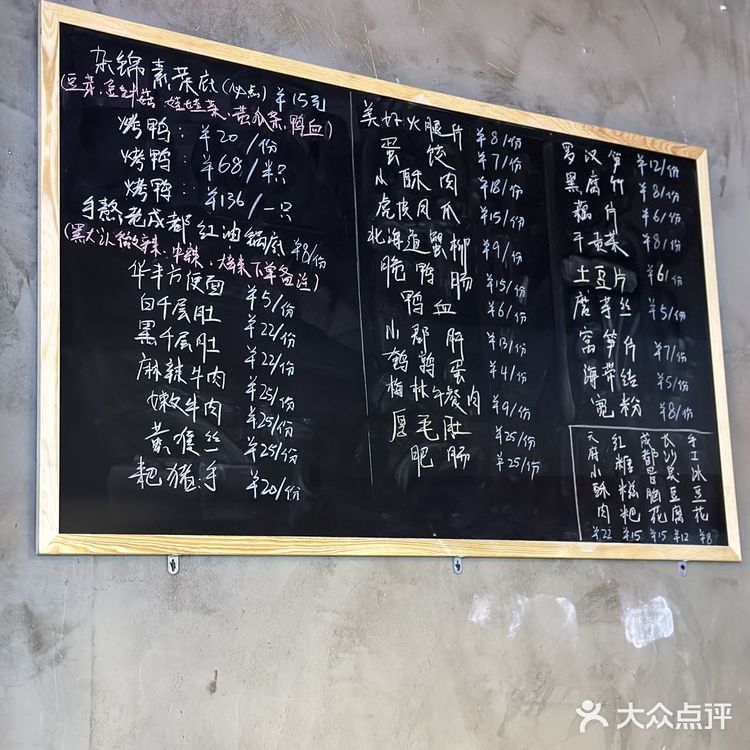 杂锦素菜底(必点) ¥15元
(豆芽.豆制菇 娃娃菜、黄瓜条,鸭血)
烤鸭: ¥20/份
烤鸭: ¥68/半只
烤鸭: ¥136/一只
手熬老成都红油锅底 ¥8/份
(黑大认微辣、中辣、大辣下单备注)
华丰方便面 ¥5/份
白千层肚 ¥22/份
黑千层肚 ¥22/份
麻辣牛肉 ¥25/份
嫩牛肉 ¥25/份
黄喉丝 ¥25/份
耙猪手 ¥20/份
美好火腿片 ¥8/份
蛋饺 ¥7/份
小酥肉 ¥18/份
虎皮凤爪 ¥15/份
北海道蟹柳 ¥9/份
脆鸭肠 ¥15/份
鸭血 ¥6/份
小郡肝 ¥13/份
鹌鹑蛋 ¥4/份
梅林午餐肉 ¥9/份
厚毛肚 ¥25/份
肥肠 ¥25/份
罗汉笋 ¥12/份
黑腐竹 ¥8/份
藕片 ¥6/份
干贡菜 ¥8/份
土豆片 ¥6/份
魔芋丝 ¥5/份
窝笋片 ¥7/份
海带结 ¥5/份
宽粉 ¥8/份
天府小酥肉 ¥22
红糖糍粑 ¥15
成都冒脑花 ¥15
长沙臭豆腐 ¥12
手工冰豆花 ¥8
大众点评